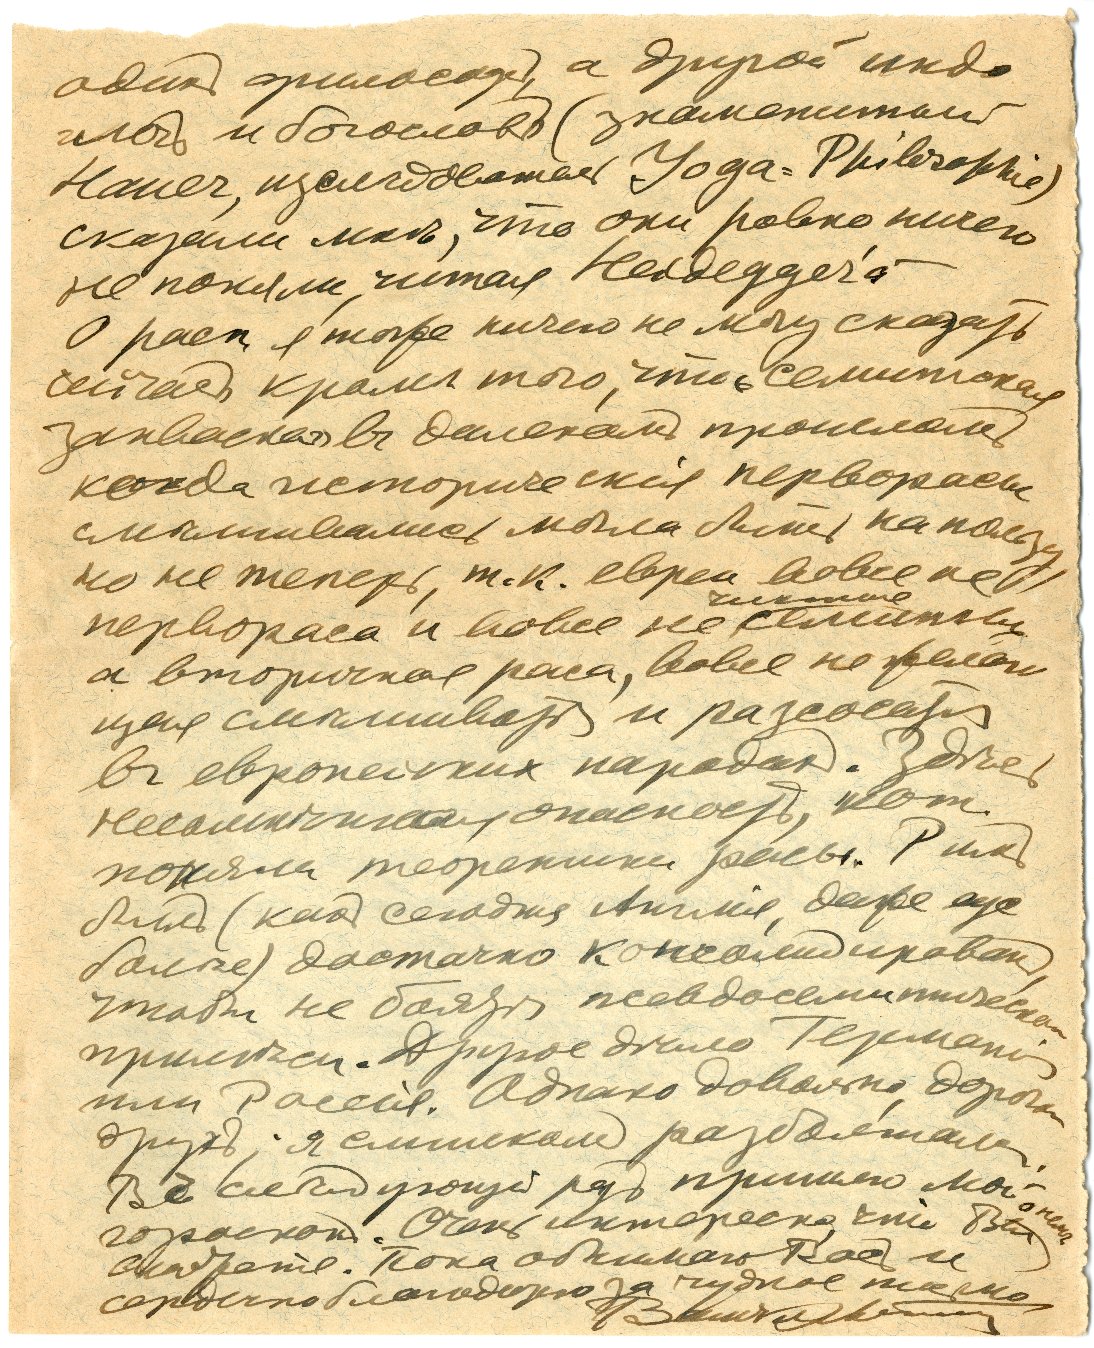 одинъ философъ, а другой индо
логъ и богословъ (знаменитый
Hauer, изслѣдователь Yoga-Philosophie)
сказали мнѣ, что они ровно ничего
не поняли, читая Heidegger'а
О расѣ я тоже ничего не могу сказать
сейчасъ кромѣ того, что семитская
закваска въ далекомъ прошломъ
когда историческія перворасы
смѣшивались могла быть на пользу,
но не теперь, т.к. евреи вовсе не
первораса и вовсе не чистые семиты,
а вторичная раса, вовсе не желаю
щая смѣшивать и разсосать
въ европейских народахъ. Здѣсь
несомнѣнная опасность, кот.
поняли теоретики расы. Римъ
былъ (какъ сегодня Англія, даже еще
болѣе) достачно консолидированъ,
чтобы не бояться псевдосемитической
примѣси. Другое дѣло Германія
или Россія. Однако довольно, дорогой
другъ; я слишкомъ разболтался.
Въ слѣдующій разъ пришлю мой
гороскопъ. Очень интересно, что Вы о немъ
скажете. Пока обнимаю Васъ и
сердечно благодарю за чудное письмо.
Вашъ